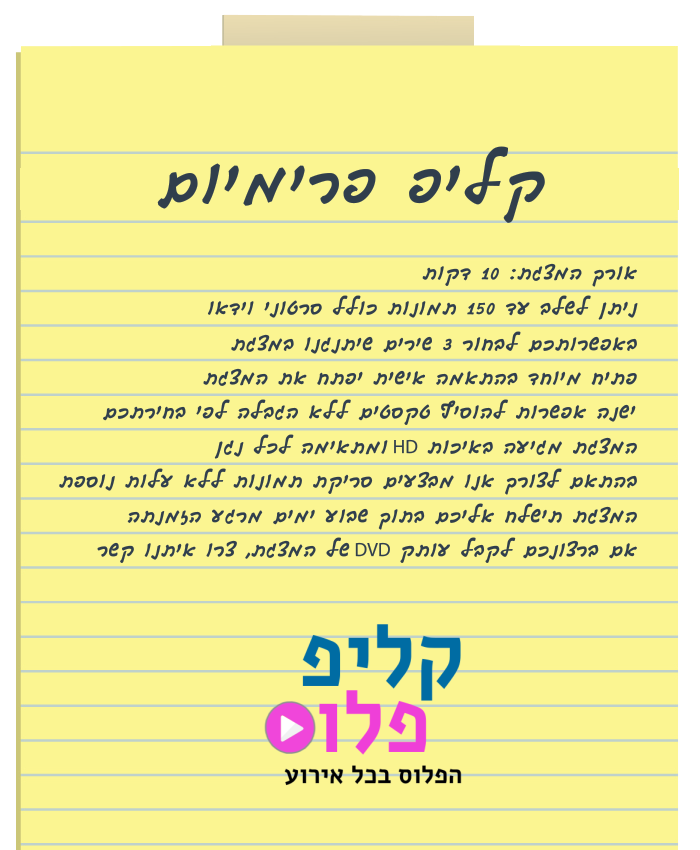 קליפ פרימיום
אורך המצגת: 10 דקות
ניתן לשלב עד 150 תמונות כולל סרטוני וידאו
באפשרותכם לבחור 3 שירים שיתנגנו במצגת
פתיח מיוחד בהתאמה אישית יפתח את המצגת
ישנה אפשרות להוסיף טקסטים ללא הגבלה לפי בחירתכם
המצגת מגיעה באיכות HD ומתאימה לכל נגן
בהתאם לצורך אנו מבצעים סריקת תמונות ללא עלות נוספת
המצגת תישלח אליכם בתוך שבוע ימים מרגע הזמנתה
אם ברצונכם לקבל עותק DVD של המצגת, צרו איתנו קשר
קליפ
פלוס
הפלוס בכל אירוע